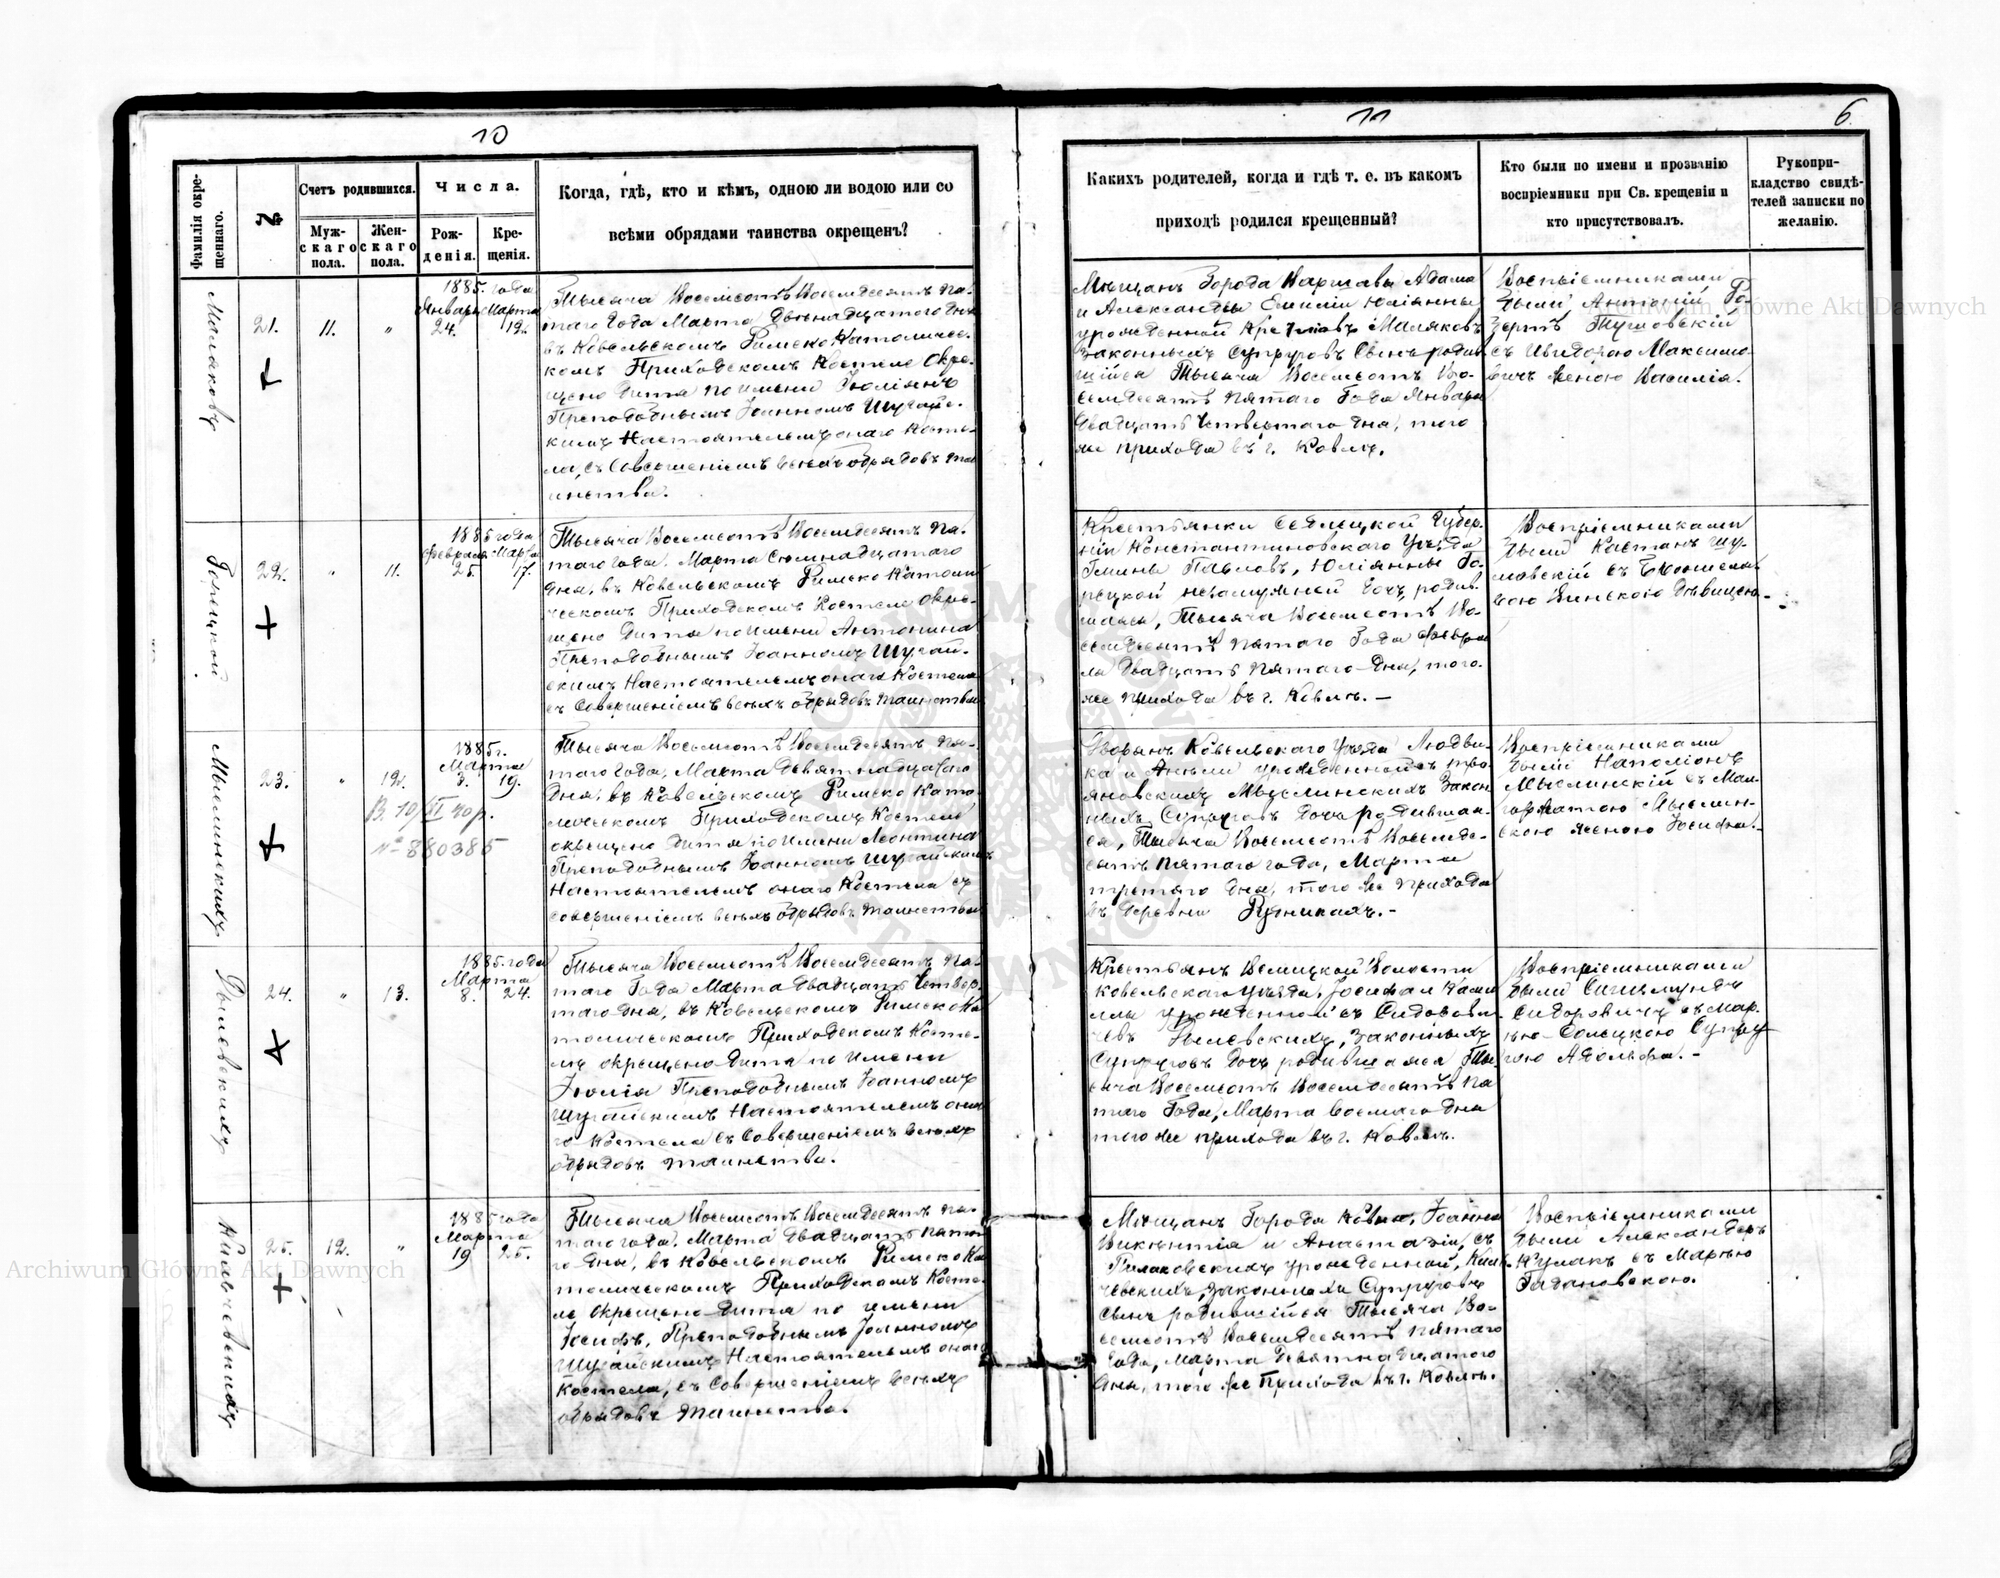 10
Фамилія окре-
щеннаго.
№
Счетъ родившихся.
Муж-
скаго
пола.
Жен-
скаго
пола.
Числа.
Рож-
денія.
Кре-
щенія.
Когда, гдѣ, кто и кѣмъ, одною ли водою или со
всѣми обрядами таинства окрещенъ?
21.
11.
"
1885. года
Января Марта
24. 12.
Тысяча Восемсотъ Восемдесятъ Пя-
таго Года Марта Двѣнадцатого Дня
въ Ковельскомъ Римско Католичес-
комъ Приходскомъ Костеле Окре-
щено Дитя по имени Юліянъ
Преподобнымъ Іоанномъ Шугайс-
кимъ Настоятелемъ онаго Косте-
ла, съ Совершеніемъ всѣхъ обрядовъ Та-
инства.
22.
"
11.
1885 года
Февраля Марта
25. 17.
Тысяча Восемсотъ Восемдесятъ Пя-
таго года, Марта Семнадцатаго
Дня, въ Ковельскомъ Римско Католи
ческомъ Приходскомъ Костеле Окре-
щено Дитя по имени Антонина
Преподобнымъ Іоанномъ Шугай-
скимъ Настоятелемъ онаго Костела
съ Совершеніемъ всѣхъ обрядовъ Таинства
Мыслинскихъ
23.
"
12.
1885г.
Марта
3. 19.
В. 10/VI 40р.
№ 880385
Тысяча Восемсотъ Восемдесятъ Пя-
таго года, Марта Девятнадцатого
Дня, въ Ковельскомъ Римско Като-
лическомъ Приходскомъ Костелѣ
окрещено Дитя по имени Леонтина
Преподобнымъ Іоанномъ Шугайскимъ
Настоятелемъ онаго Костела съ
совершеніемъ всѣхъ обрядовъ Таинства
24.
"
13.
1885. года
Марта
8. 24.
Тысяча Восемсотъ Восемдесятъ Пя-
таго Года Марта Двадцать Четвер-
таго Дня, въ Ковельскомъ Римско Ка
толическомъ Приходскомъ Косте-
лѣ окрещено Дитя по имени
Юлія Преподобнымъ Іоанномъ
Шугайскимъ Настоятелемъ она
го Костела съ Совершеніемъ всѣхъ
обрядовъ Таинства.
25.
12.
"
1885 года
Марта
19 25.
Тысяча Восемсотъ Восемдесятъ Пя-
таго года, Марта Двадцать Пята
го Дня, въ Ковельскомъ Римско Ка
толическомъ Приходскомъ Косте-
ле Окрещено Дитя по имени
Іосифъ, Преподобнымъ Іоанномъ
Шугайскимъ Настоятелемъ онаго
Костела, съ Совершеніемъ всѣхъ
обрядовъ Таинства.
11
6.
Какихъ родителей, когда и гдѣ т. е. въ какомъ
приходѣ родился крещенный?
Кто были по имени и прозванію
воспріемники при Св. крещеніи и
кто присутствовалъ.
Рукопри-
кладство свидѣ-
телей записки по
желанію.
Мѣщанъ Города Варшавы Адама
и Александы Емиліи Юліянны
урожденной Масляковъ
Законныхъ Супруговъ Сынъ родив
шійся Тысяча Восемсотъ Во-
семдесятъ Пятаго Года Января
Двадцать Четвертаго Дня, того
же прихода въ г. Ковлѣ.
Воспріемниками
были Антоній Ро-
бертъ
съ Максимо-
вичъ женою Василія.
Крестьянки Седлецкой Губер-
ніи Константиновского Уѣзда
Гмины Павловъ, Юліянны Го-
рецкой незамужней Дочь родив
шаяся, Тысяча Восемсотъ Во-
семдесятъ Пятаго Года Февра
ля Двадцать Пятаго Дня, того-
же прихода въ г. Ковлѣ. —
Воспріемниками
были Каетанъ Шу-
мовскій съ Брониславою
Девицею-
Дворянъ Ковельскаго Уѣзда Людви-
ка и урожденной съ Тро-
яновскихъ Мыслинскихъ Закон
ныхъ Супруговъ Дочь родившая-
ся, Тысяча Восемсотъ Восемде-
сятъ Пятаго года, Марта
третяго Дня, того же Прихода
въ Деревни
Воспріемниками
были Наполіонъ
Мыслинскій съ Мал-
горжатою Мыслин-
скою женою Іосифа.-
Крестьянъ Велицкой Волости
Ковельскаго Уѣзда, Іосифа и Ками
лы урожденной съ Сидорови-
чевъ Дылевскихъ, Законныхъ
Супруговъ Дочь родившаяся Ты-
сяча Восемсотъ Восемдесятъ Пя
таго Года, Марта Восмаго Дня
того же прихода въ г. Ковлѣ.
Воспріемниками
были Сигизмундъ
Сидоровичъ съ Мар-
ію Солецкою Супру
гою Адольфа. -
Мѣщанъ Города Ковля, Іоанна
Викентія и Анастазіи, съ
урожденной,
Законныхъ Супруговъ
сынъ родившійся Тысяча Во-
семсотъ Восемдесятъ Пятаго
Года, Марта Девятнадцатого
Дня, того же Прихода въ г. Ковлѣ.
Воспріемниками
были Александеръ
Кулакъ съ Марью
Archiwum Główne Akt Dawnych
Archiwum Główne Akt Dawnych